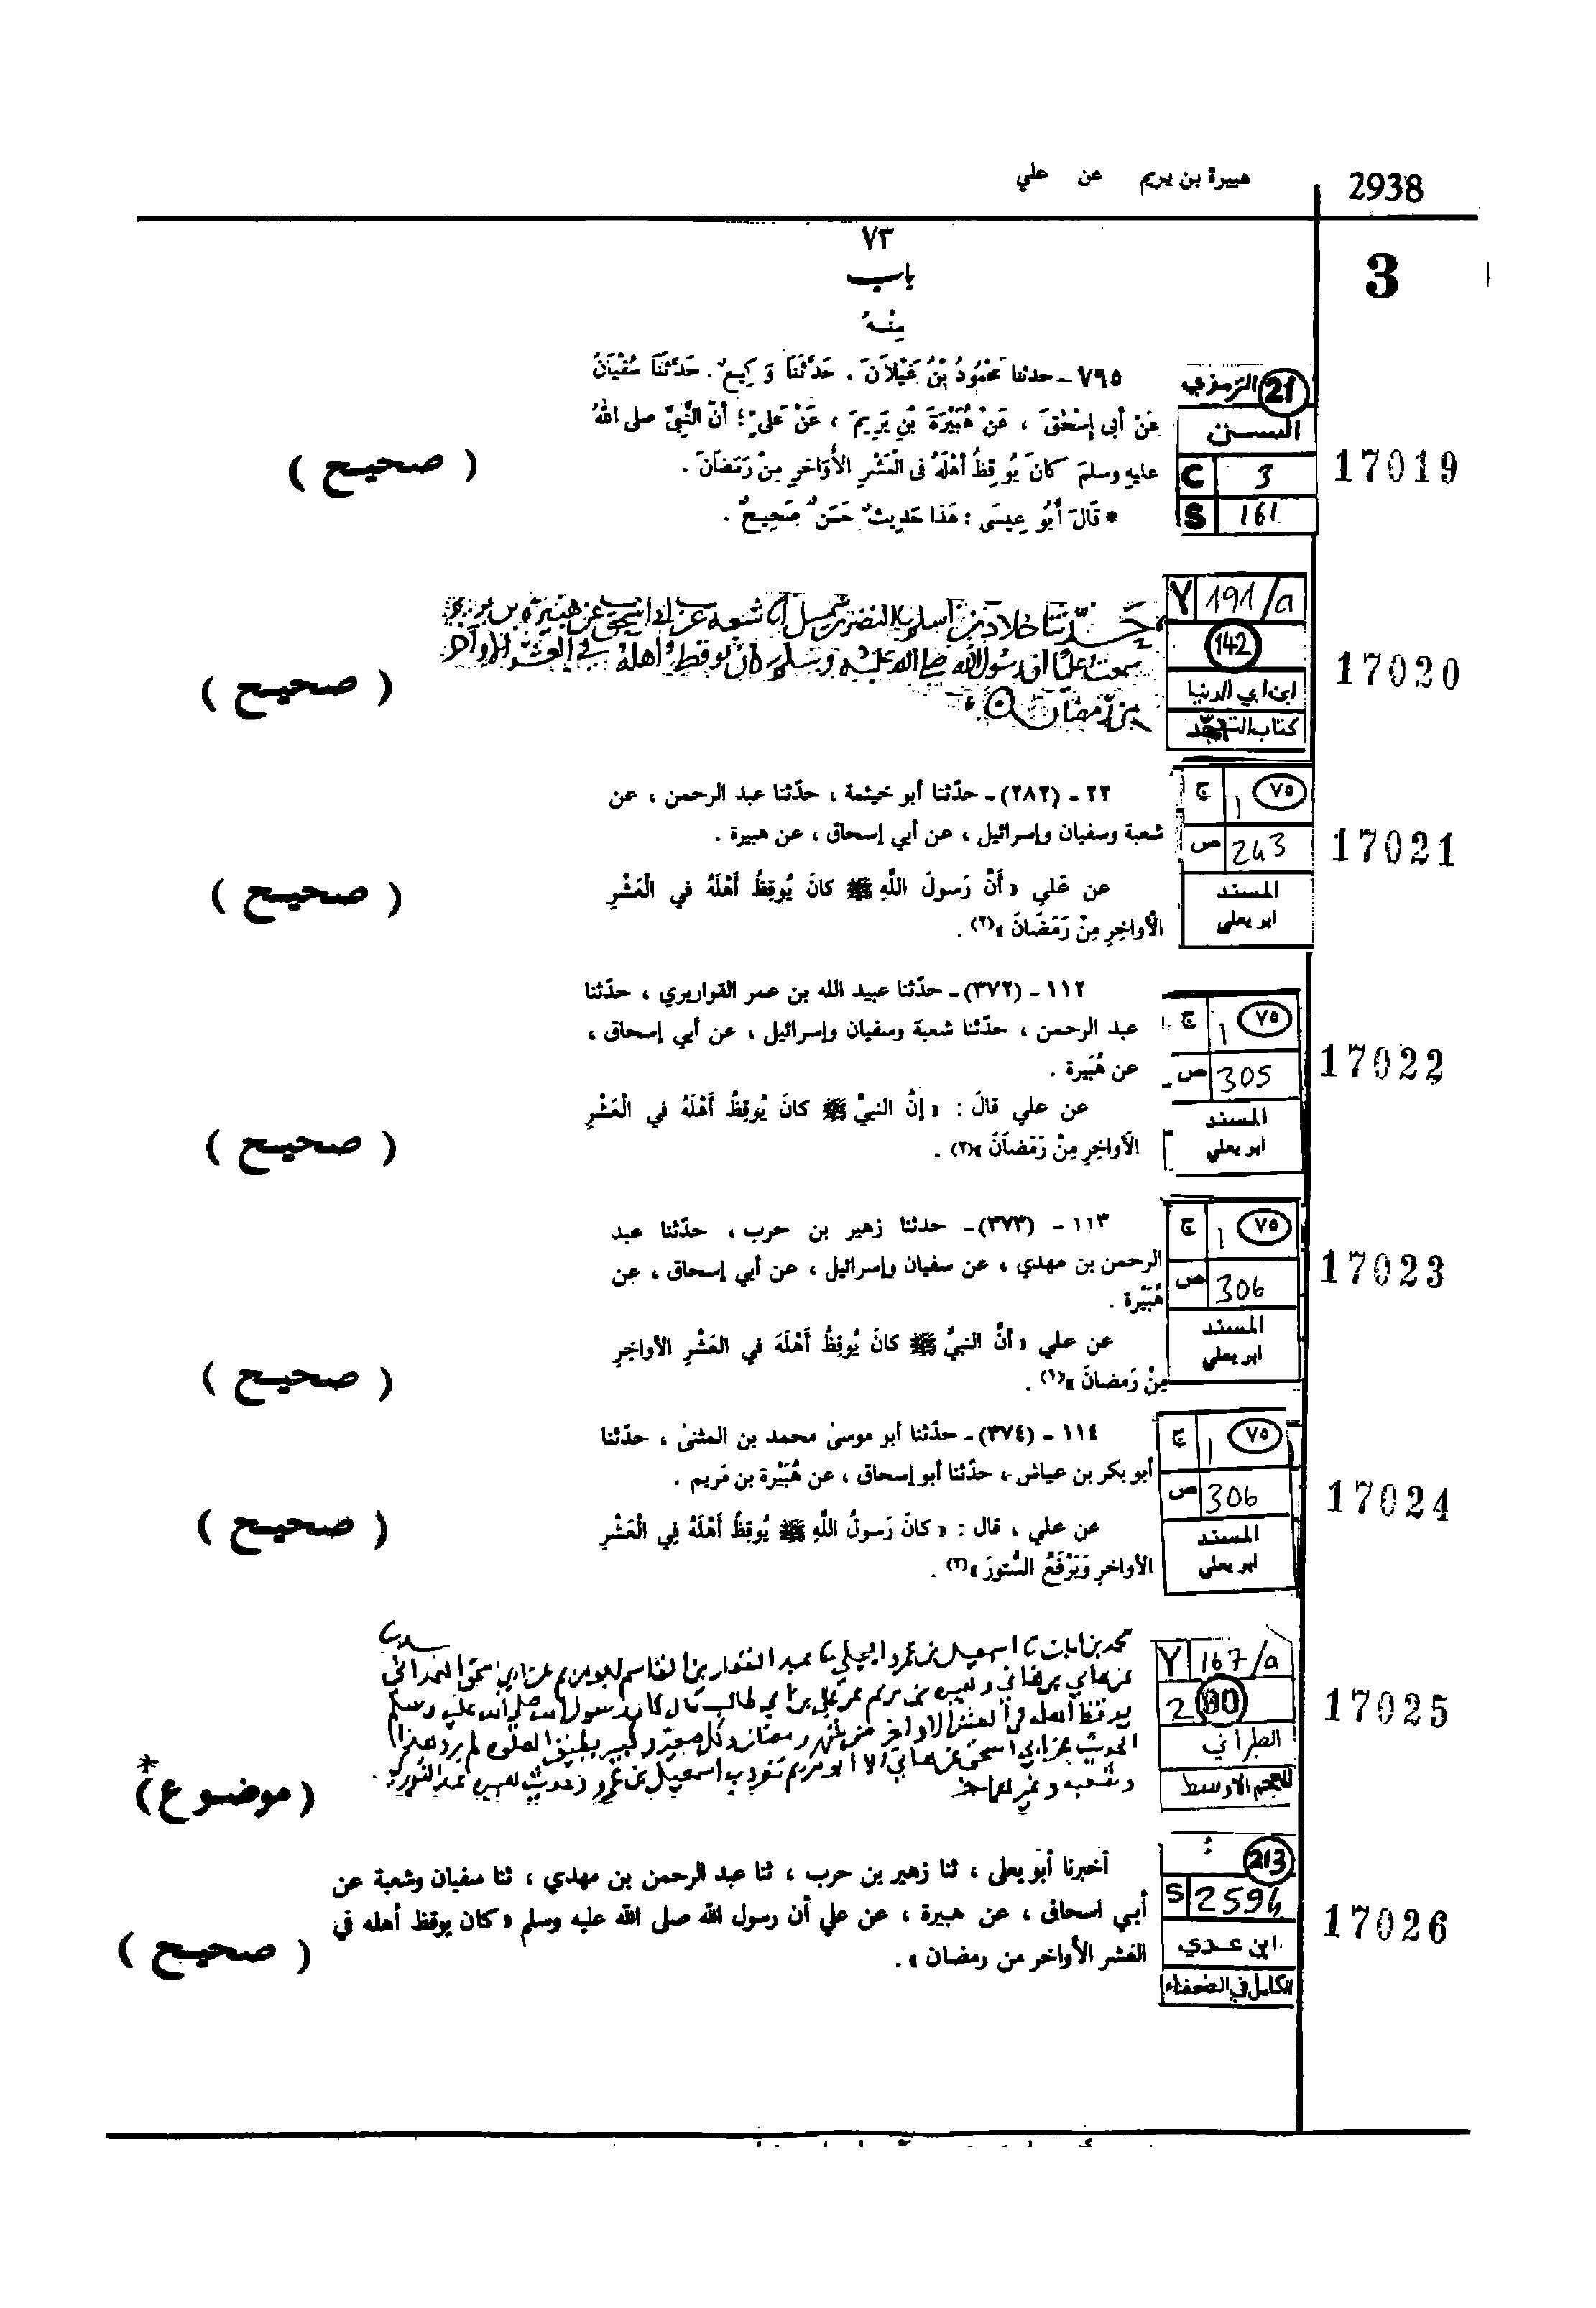 2938
هبيرة بن يريم عن علي
3
٧٣
باب
مِنْهُ
21 الترمذي
السنن
C 3
S 161
17019
٧٩٥ - حدثنا مَحْمُودُ بْنُ غَيْلَانَ . حَدَّثَنَا وَكِيعٌ . حَدَّثَنَا سُفْيَانُ
عَنْ أبى إِسْحٰقَ ، عَنْ هُبَيْرَةَ بْنِ يَرِيمَ ، عَنْ عَلىٍّ ؛ أنَّ النَّبِيَّ صلى اللهُ
عليهِ وسلمَ كانَ يُوقِظُ أهْلَهُ فى الْعَشْرِ الأَوَاخِرِ مِنْ رَمَضَانَ .
* قَالَ أَبُو عِيسَى : هَذا حَدِيثٌ حَسَنٌ صَحِيحٌ .
( صحيح )
Y 191/a
142
ابن ابي الدنيا
كتاب التهجد
17020
حدثنا خلاد بن اسلم النضر بن شميل شعبة عن ابي اسحق عن هبيرة بن يريم
سمعت عليا ان رسول الله صلى الله عليه وسلم كان يوقظ اهله في العشر الاواخر
من رمضان
( صحيح )
٧٥ ١ ج
243 ص
المسند
ابو يعلى
17021
٢٢ - (٢٨٢) - حدّثنا أبو خيثمة ، حدّثنا عبد الرحمن ، عن
شعبة وسفيان وإسرائيل ، عن أبي إسحاق ، عن هبيرة .
عن عَلي « أَنَّ رَسولَ اللَّهِ ﷺ كانَ يُوقِظُ أَهْلَهُ في الْعَشْرِ
الْأَواخِرِ مِنْ رَمَضَانَ »(٢) .
( صحيح )
٧٥ ١ ج
305 ص
المسند
ابو يعلي
17022
١١٢ - (٣٧٢) - حدّثنا عبيد الله بن عمر القواريري ، حدّثنا
عبد الرحمن ، حدّثنا شعبة وسفيان وإسرائيل ، عن أبي إسحاق ،
عن هُبَيرة .
عن علي قالَ : « إنَّ النبيَّ ﷺ كانَ يُوقِظُ أَهْلَهُ في الْعَشْرِ
الْأَواخِرِ مِنْ رَمَضَانَ »(٢) .
( صحيح )
٧٥ ١ ج
306 ص
المسند
ابو يعلي
17023
١١٣ - (٣٧٣) - حدثنا زهير بن حرب ، حدّثنا عبد
الرحمن بن مهدي ، عن سفيان وإسرائيل ، عن أبي إسحاق ، عن
هُبَيْرة .
عن علي « أنَّ النبيَّ ﷺ كانَ يُوقِظُ أَهْلَهَ في العَشْرِ الأواخِرِ
مِنْ رَمضانَ »(١) .
( صحيح )
٧٥ ١ ج
306 ص
المسند
ابو يعلي
17024
١١٤ - (٣٧٤) - حدّثنا أبو موسىٰ محمد بن المثنىٰ ، حدّثنا
أبو بكر بن عياش ، حدّثنا أبو إسحاق ، عن هُبَيْرة بن مَريم .
عن علي ، قال : « كانَ رَسولُ اللَّهِ ﷺ يُوقِظُ أَهْلَهُ فِي الْعَشْرِ
الأواخرِ وَيَرْفَعُ السُّتورَ »(٢) .
( صحيح )
Y 167/a
الطبراني
المعجم الاوسط
17025
محمد بن ابان اسمعيل بن عمرو البجلي عبد الغفار بن القاسم ابو مريم عن ابي اسحق الهمداني
عن هاني بن هاني وهبيرة بن يريم عن علي بن ابي طالب قال كان رسول الله صلى الله عليه وسلم
يوقظ اهله في العشر الاواخر من شهر رمضان وكل صغير وكبير يطيق الصلوة لم يرو هذا
الحديث عن ابي اسحق عن هاني الا ابو مريم تفرد به اسمعيل بن عمرو وحديث هبيرة عند الثوري
وشعبه وغيرهما
( موضوع ) *
213
S 2594
ابن عدي
الكامل في الضعفاء
17026
أخبرنا أبو يعلى ، ثنا زهير بن حرب ، ثنا عبد الرحمن بن مهدي ، ثنا سفيان وشعبة عن
أبي اسحاق ، عن هبيرة ، عن علي أن رسول الله صلى الله عليه وسلم « كان يوقظ أهله في
العشر الأواخر من رمضان » .
( صحيح )